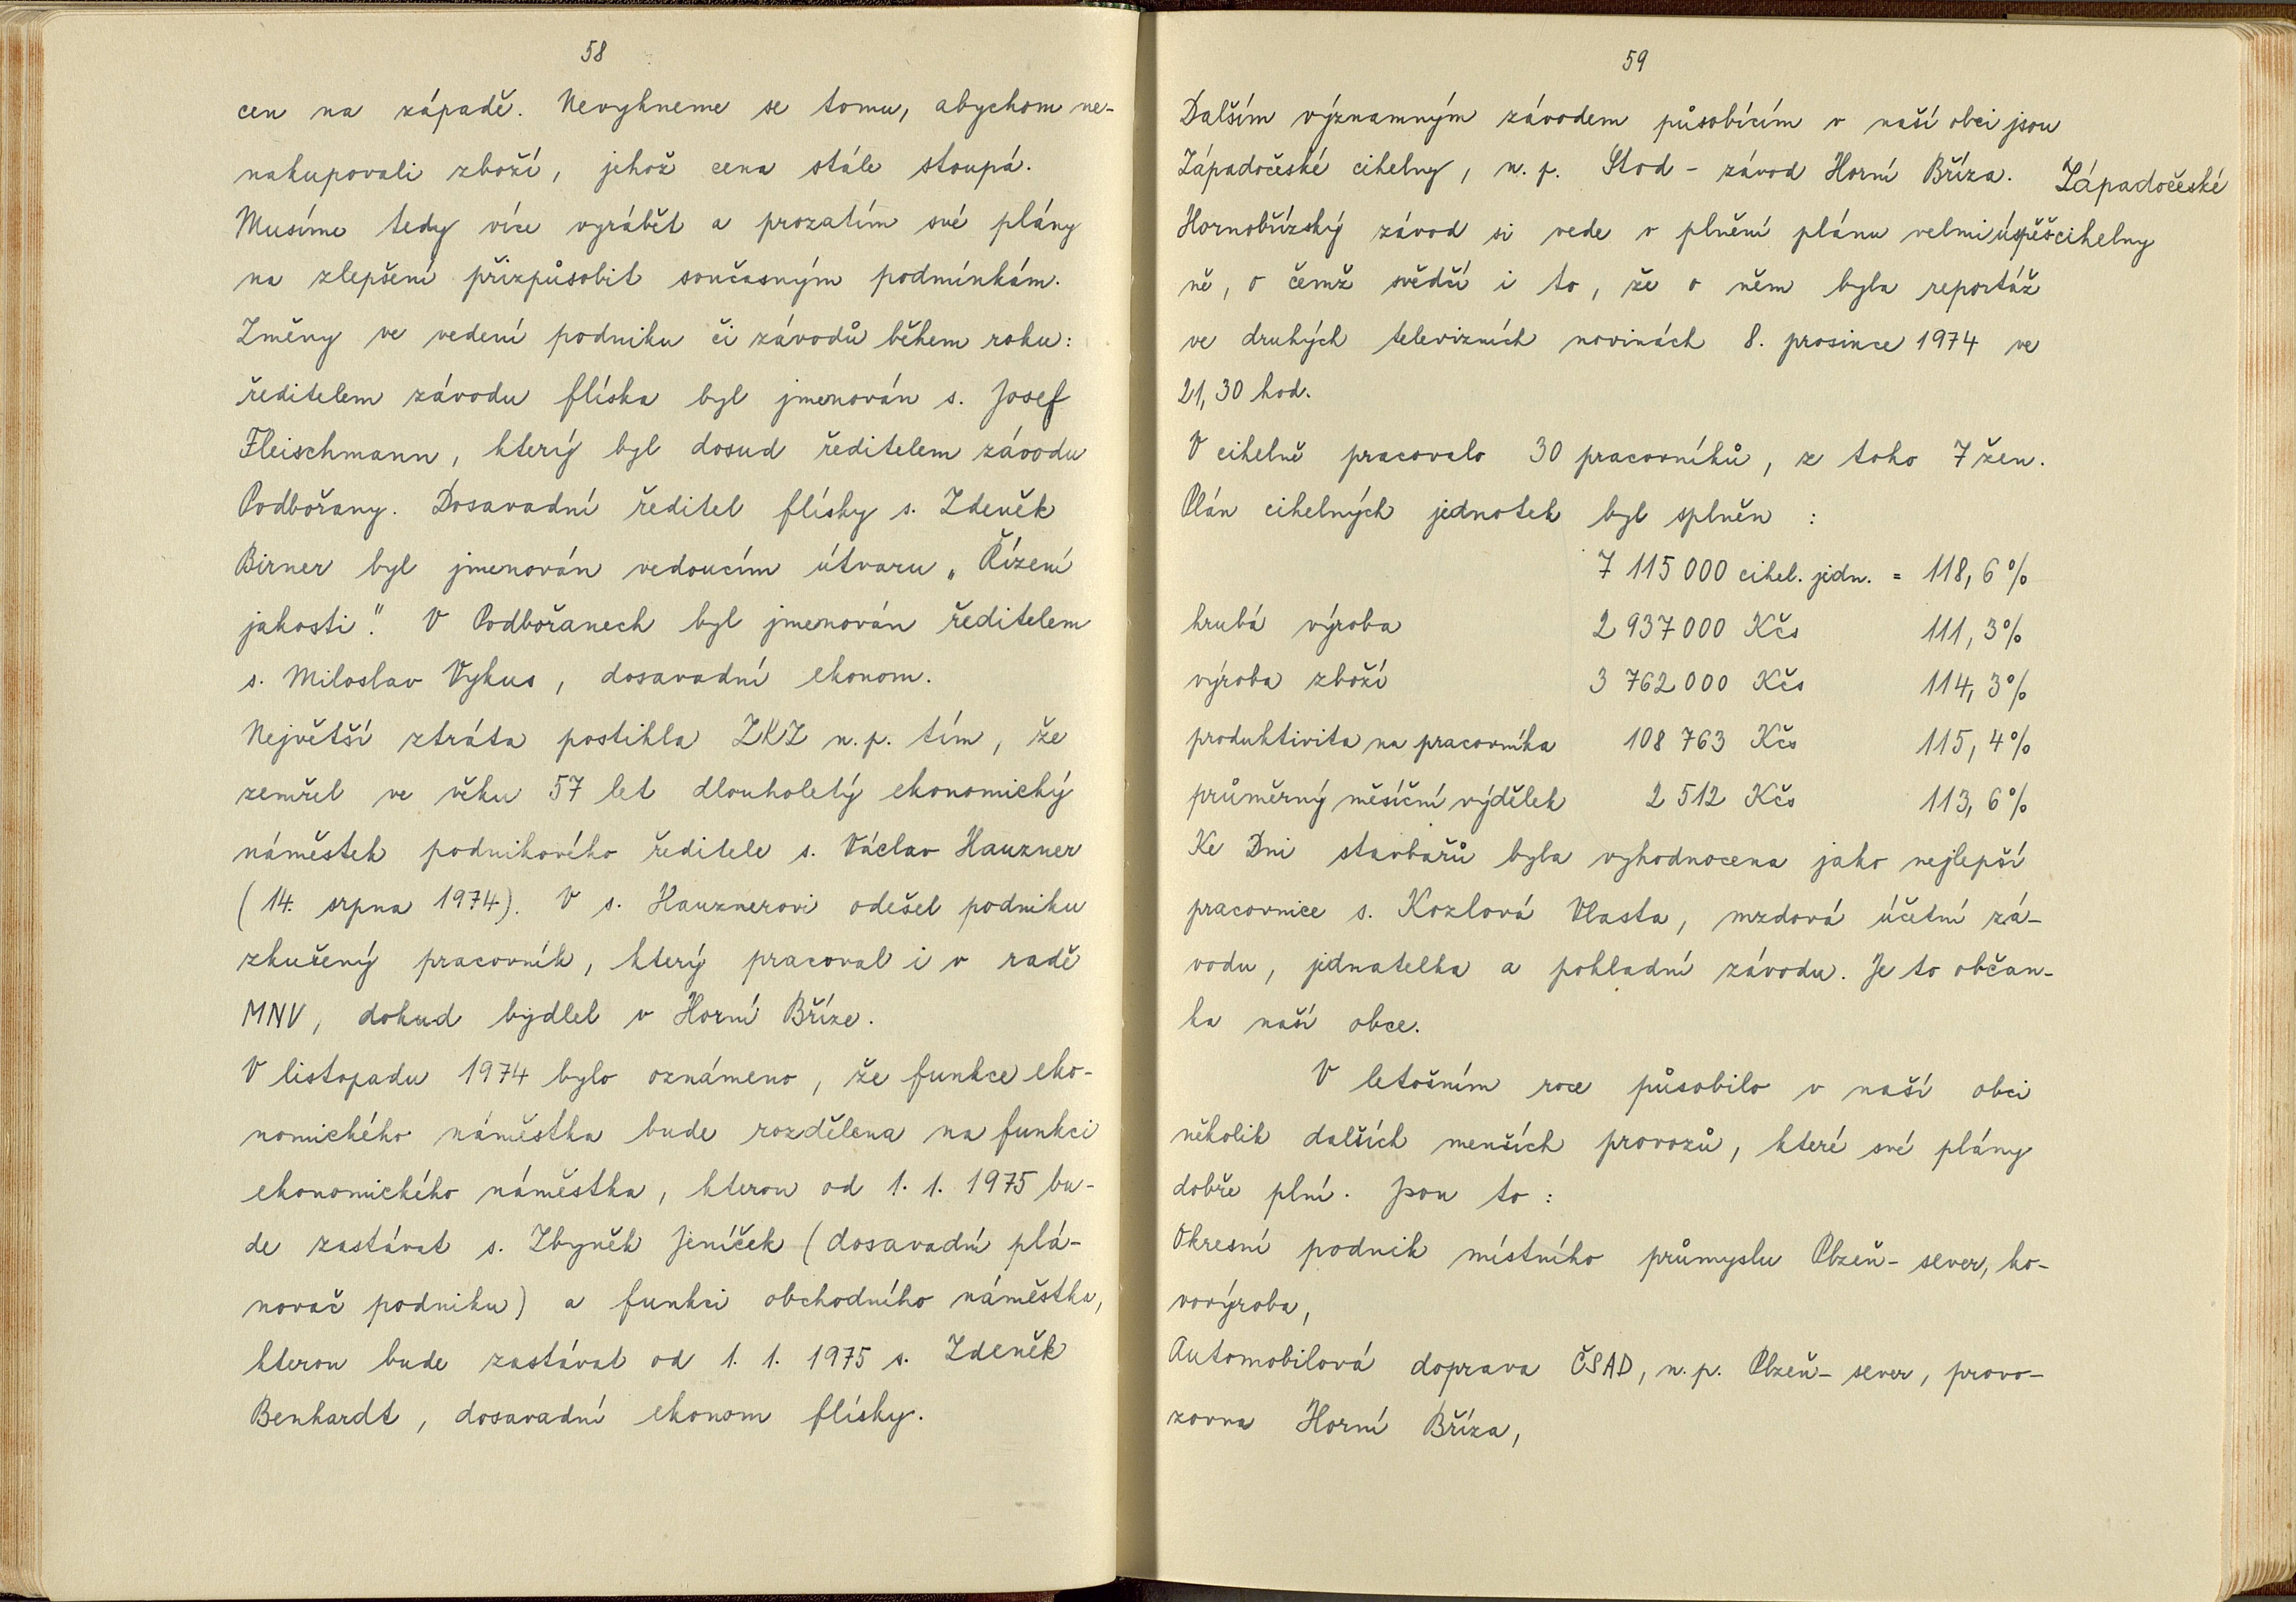 58
cen na západě. Nevyhneme se tomu, abychom ne-
nakupovali zboží, jehož cena stále stoupá.
Musíme tedy více vyrábět a prozatím své plány
na zlepšení přizpůsobit současným podmínkám.
Změny ve vedení podniku či závodů během roku:
ředitelem závodu flíska byl jmenován s. Josef
Fleischmann, který byl dosud ředitelem závodu
Podbořany. Dosavadní ředitel flísky s. Zdeněk
Birner byl jmenován vedoucím útvaru „Řízení
jakosti". V Podbořanech byl jmenován ředitelem
s. Miloslav Vykus, dosavadní ekonom.
Největší ztráta postihla ZKZ n.p. tím, že
zemřel ve věku 57 let dlouholetý ekonomický
náměstek podnikového ředitele s. Václav Hauzner
(14. srpna 1974). V s. Hauznerovi odešel podniku
zkušený pracovník, který pracoval i v radě
MNV, dokud bydlel v Horní Bříze.
V listopadu 1974 bylo oznámeno, že funkce eko-
nomického náměstka bude rozdělena na funkci
ekonomického náměstka, kterou od 1. 1. 1975 bu-
de zastávat s. Zbyněk Jeníček (dosavadní plá-
novač podniku) a funkci obchodního náměstka,
kterou bude zastávat od 1. 1. 1975 s. Zdeněk
Benhardt, dosavadní ekonom flísky.
59
Dalším významným závodem působícím v naší obci jsou
Západočeské cihelny, n. p. Stod - závod Horní Bříza. Západočeské
Hornobřízský závod si vede v plnění plánu velmi úspěš cihelny
ně, o čemž svědčí i to, že o něm byla reportáž
ve druhých televizních novinách 8. prosince 1974 ve
21,30 hod.
V cihelně pracovalo 30 pracovníků, z toho 7 žen.
Plán cihelných jednotek byl splněn :
7 115 000 cihel. jedn. = 118,6 %
hrubá výroba 2 937 000 Kčs 111,3 %
výroba zboží 3 762 000 Kčs 114,3 %
produktivita na pracovníka 108 763 Kčs 115,4 %
průměrný měsíční výdělek 2 512 Kčs 113,6 %
Ke Dni stavbařů byla vyhodnocena jako nejlepší
pracovnice s. Kozlová Vlasta, mzdová účetní zá-
vodu, jednatelka a pokladní závodu. Je to občan-
ka naší obce.
V letošním roce působilo v naší obci
několik dalších menších provozů, které své plány
dobře plní. Jsou to :
Okresní podnik místního průmyslu Plzeň - sever, ko-
vovýroba,
Automobilová doprava ČSAD, n. p. Plzeň - sever, provo-
zovna Horní Bříza,